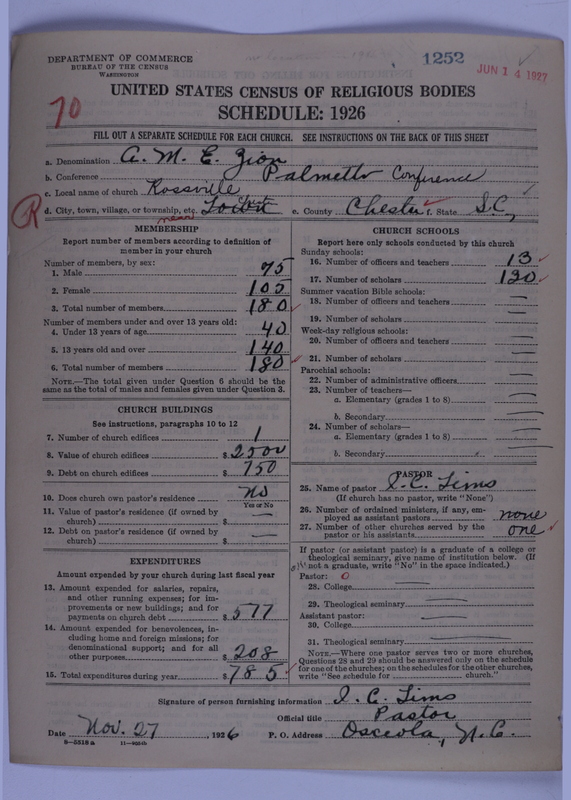 DEPARTMENT OF COMMERCE
BUREAU OF THE CENSUS
WASHINGTON
1252
JUN 14 1927
UNITED STATES CENSUS OF RELIGIOUS BODIES
70
SCHEDULE: 1926
FILL OUT A SEPARATE SCHEDULE FOR EACH CHURCH. SEE INSTRUCTIONS ON THE BACK OF THIS SHEET
a. Denomination A. M. E. Zion
b. Conference Palmetto Conference
c. Local name of church Rossville
R d. City, town, village, or township, etc. near e. County Chester f. State S.C,
MEMBERSHIP
Report number of members according to definition of member in your church
Number of members, by sex:
1. Male 75
2. Female 105
3. Total number of members 180
Number of members under and over 13 years old:
4. Under 13 years of age 40
5. 13 years old and over 140
6. Total number of members 180
NOTE.—The total given under Question 6 should be the
same as the total of males and females given under Question 3.
CHURCH BUILDINGS
See instructions, paragraphs 10 to 12
7. Number of church edifices 1
8. Value of church edifices $ 2500
9. Debt on church edifices $ 750
10. Does church own pastor's residence No
Yes or No
11. Value of pastor's residence (if owned by
church) $ —
12. Debt on pastor's residence (if owned by
church) $ —
EXPENDITURES
Amount expended by your church during last fiscal year
13. Amount expended for salaries, repairs,
and other running expenses; for im-
provements or new buildings; and for
payments on church debt $ 577
14. Amount expended for benevolences, in-
cluding home and foreign missions; for
denominational support; and for all
other purposes $ 208
15. Total expenditures during year $ 785
CHURCH SCHOOLS
Report here only schools conducted by this church
Sunday schools:
16. Number of officers and teachers 13
17. Number of scholars 120
Summer vacation Bible schools:
18. Number of officers and teachers —
19. Number of scholars —
Week-day religious schools:
20. Number of officers and teachers —
21. Number of scholars —
Parochial schools:
22. Number of administrative officers —
23. Number of teachers—
a. Elementary (grades 1 to 8) —
b. Secondary —
24. Number of scholars—
a. Elementary (grades 1 to 8) —
b. Secondary —
PASTOR
25. Name of pastor I. C. Sims
(If church has no pastor, write "None")
26. Number of ordained ministers, if any, em-
ployed as assistant pastors none
27. Number of other churches served by the
pastor or his assistants one
If pastor (or assistant pastor) is a graduate of a college or
theological seminary, give name of institution below. (If
not a graduate, write "No" in the space indicated.)
Pastor: 0
28. College —
29. Theological seminary —
Assistant pastor:
30. College —
31. Theological seminary —
NOTE.—Where one pastor serves two or more churches,
Questions 28 and 29 should be answered only on the schedule
for one of the churches; on the schedules for the other churches,
write "See schedule for church."
Signature of person furnishing information I. C. Sims
Official title Pastor
Date Nov. 27, 1926 P. O. Address Osceola, N.C.
8—5518a 11—9554b